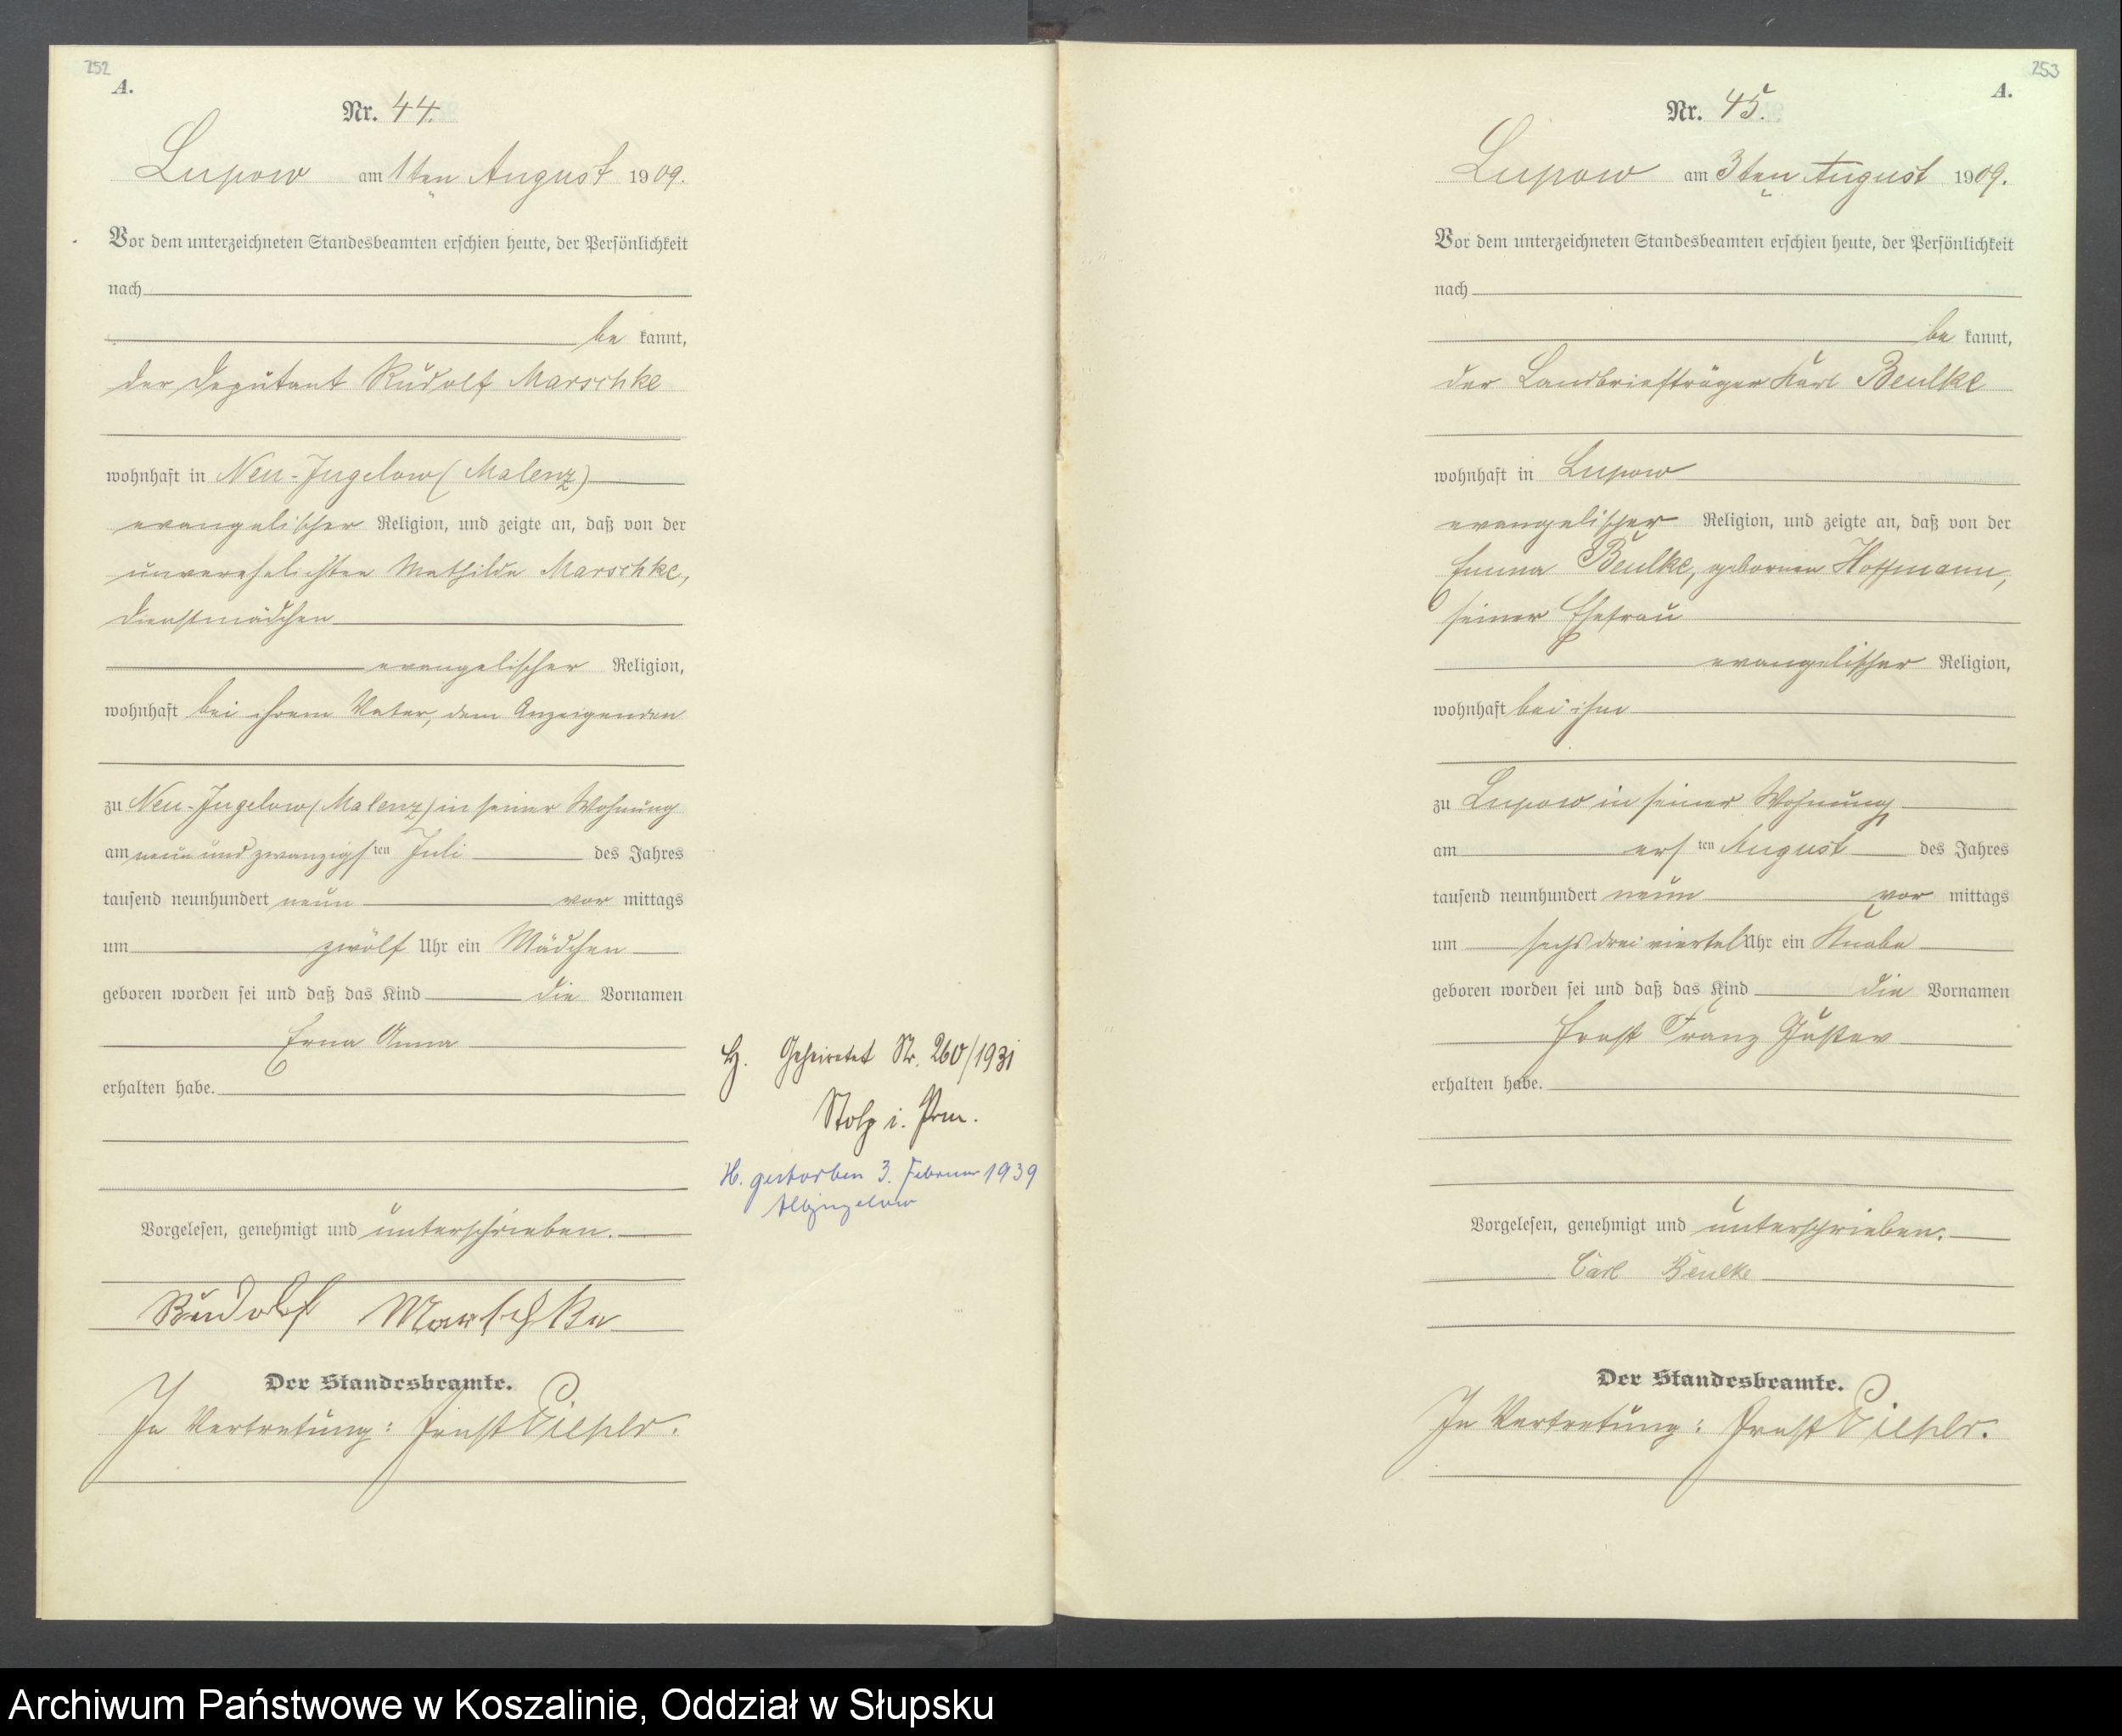 252
A.
Nr. 44.
Lupow am 1ten August 1909.
Vor dem unterzeichneten Standesbeamten erschien heute, der Persönlichkeit
nach
be kannt,
der Deputant Rudolf Marschke
wohnhaft in Neu-Jugelow (Malenz)
evangelischer Religion, und zeigte an, daß von der
unverehelichten Mathilde Marschke,
Dienstmädchen
evangelischer Religion,
wohnhaft bei ihrem Vater, dem Anzeigenden
zu Neu-Jugelow (Malenz) in seiner Wohnung
am neun und zwanzigsten Juli des Jahres
tausend neunhundert neun vor mittags
um zwölf Uhr ein Mädchen
geboren worden sei und daß das Kind die Vornamen
Erna Anna
erhalten habe.
Vorgelesen, genehmigt und unterschrieben.
Rudolf Marschke
Der Standesbeamte.
In Vertretung: Ernst
H. Geheiratet Nr. 260/1931
Stolp i. Pom.
H. gestorben 3. Februar 1939
Altjugelow
253
A.
Nr. 45.
Lupow am 3ten August 1909.
Vor dem unterzeichneten Standesbeamten erschien heute, der Persönlichkeit
nach
be kannt,
der Landbriefträger Karl Beulke
wohnhaft in Lupow
evangelischer Religion, und zeigte an, daß von der
Emma Beulke, geborenen Hoffmann,
seiner Ehefrau
evangelischer Religion,
wohnhaft bei ihm
zu Lupow in seiner Wohnung
am ersten August des Jahres
tausend neunhundert neun vor mittags
um sechs drei viertel Uhr ein Knabe
geboren worden sei und daß das Kind die Vornamen
Ernst Franz Gustav
erhalten habe.
Vorgelesen, genehmigt und unterschrieben.
Carl Beulke
Der Standesbeamte.
In Vertretung: Ernst
Archiwum Państwowe w Koszalinie, Oddział w Słupsku